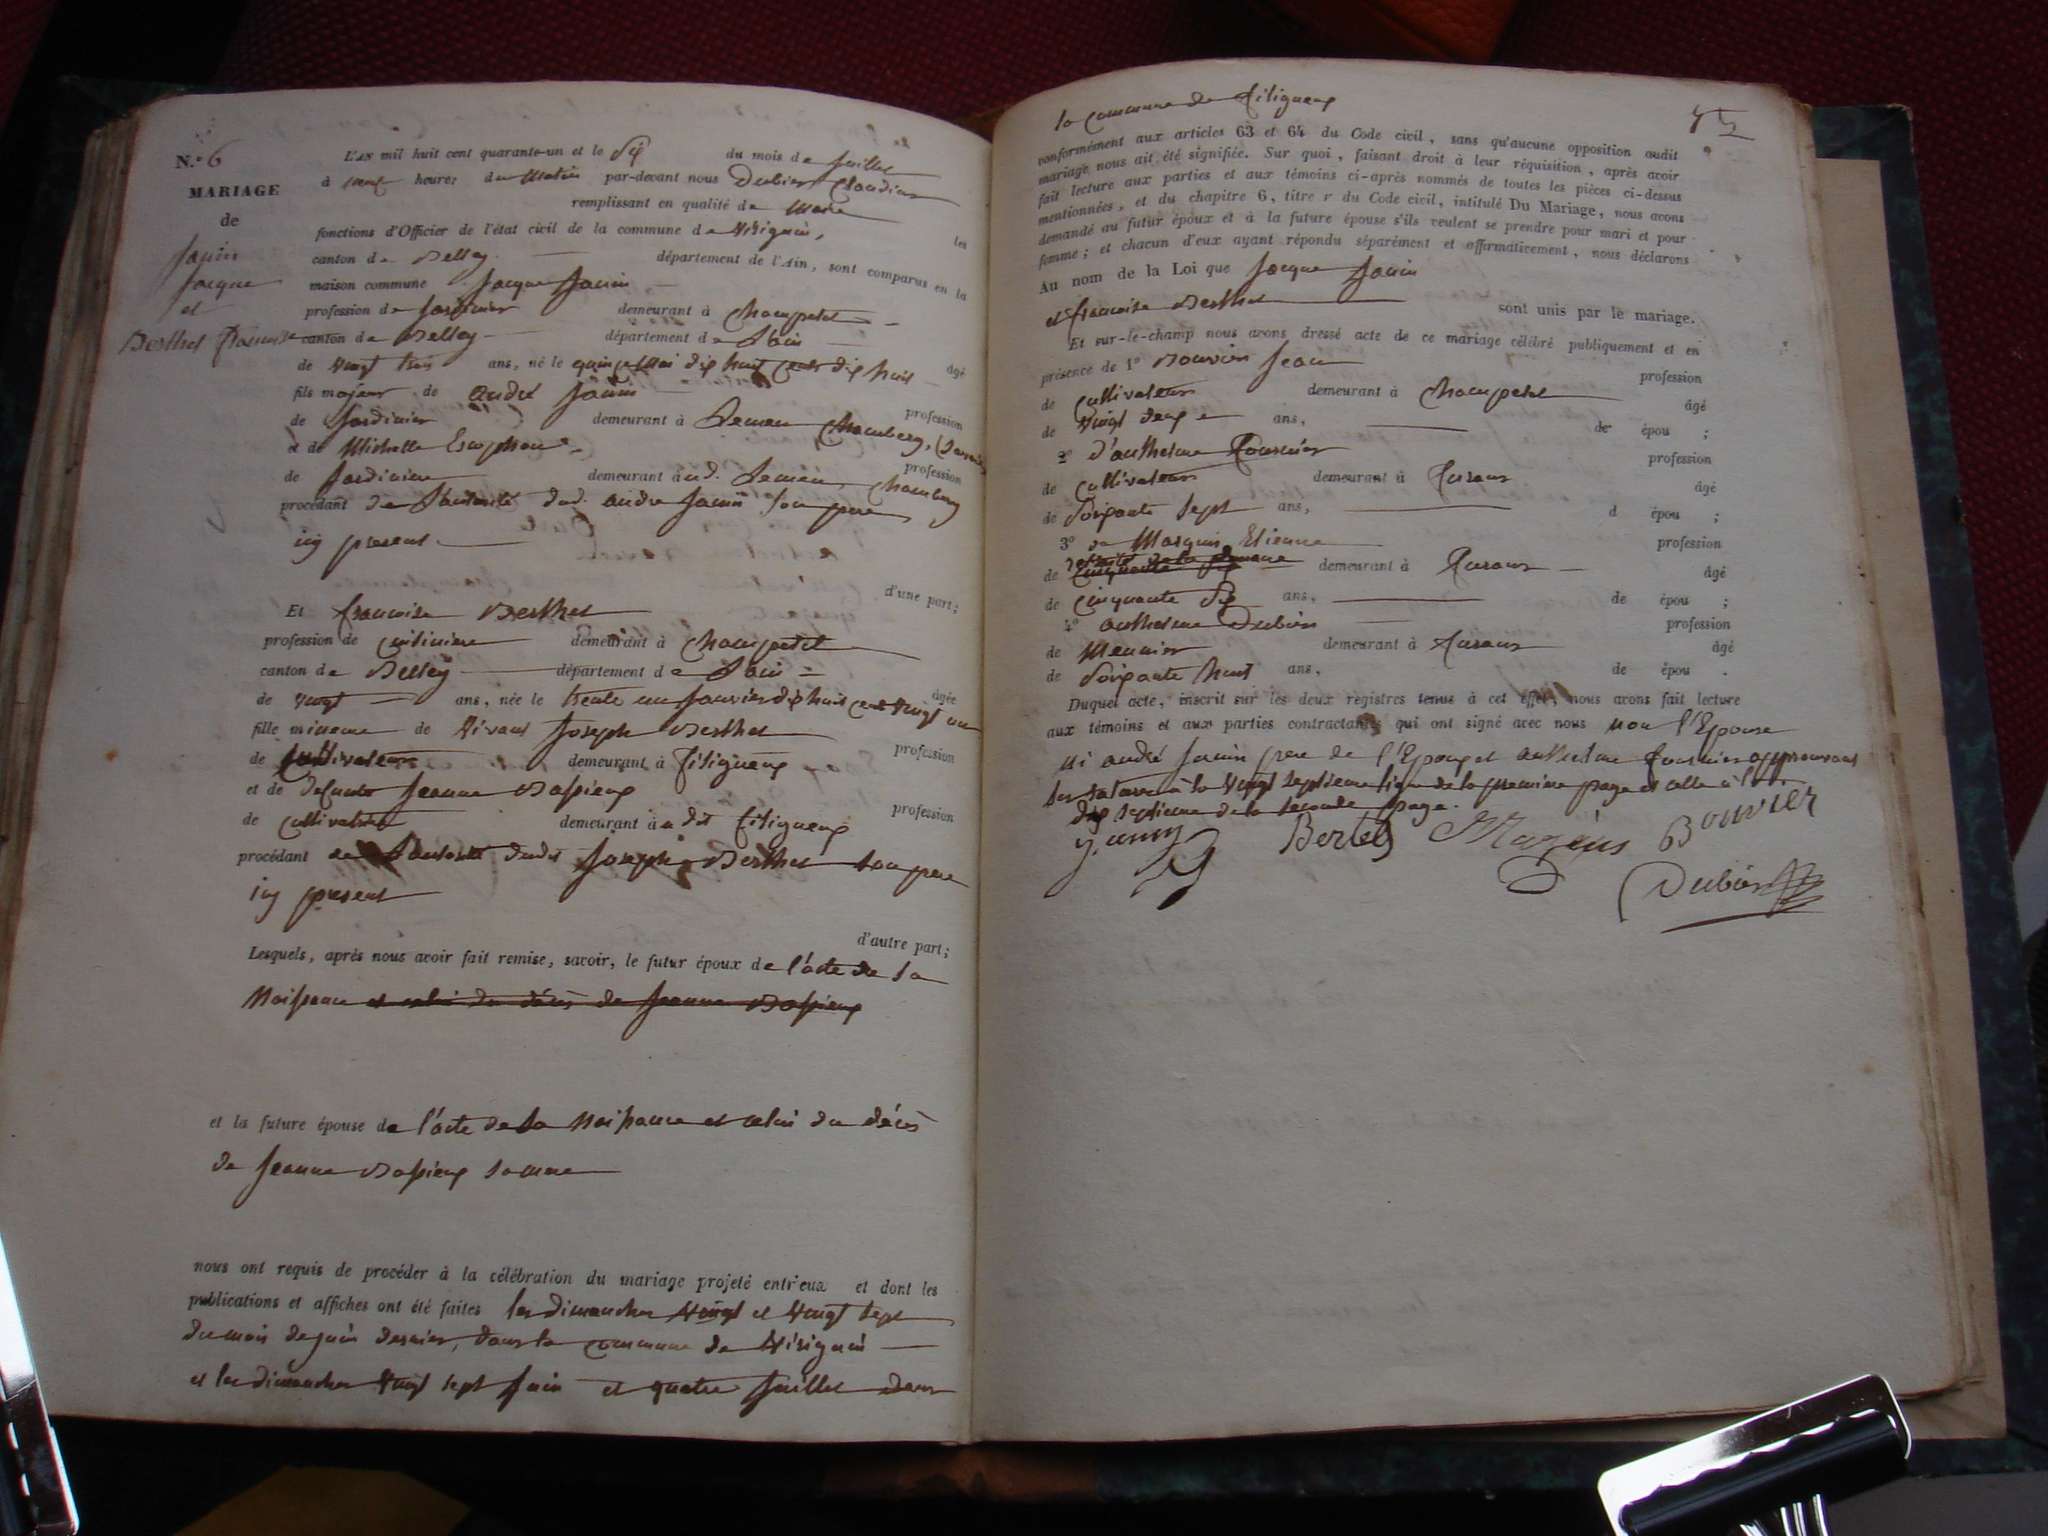 N.º 6
MARIAGE
de
Janin
Jacque
et
Berthet françoise
L'AN mil huit cent quarante-un et le dix du mois de Juillet
à neuf heures du Matin par-devant nous Dubier Claudius
remplissant en qualité de Maire les
fonctions d'Officier de l'état civil de la commune de Virignin,
canton de Belley département de l'Ain, sont comparus en la
maison commune Jacque Janin
profession de Jardinier demeurant à Champetel
canton de Belley département de L'ain âgé
de vingt trois ans, né le quinze Mai dix huit cents dix huit
fils majeur de André Janin profession
de Jardinier demeurant à Lemen Chambery, (Savoie)
et de Michelle profession
de Jardinière demeurant à ud. Lemen Chambery
procédant de L'autorité dud. andré Janin son père
icy present
d'une part;
Et françoise Berthet
profession de Cuisinière demeurant à Champetel
canton de Belley département de L'ain âgée
de vingt ans, née le trente un Janvier dix huit cent vingt un
fille mineure de vivant Joseph Berthet profession
de Cultivateur demeurant à
et de défunte Jeanne Bassieux profession
de Cultivatrice demeurant à u dit
procédant de L'autorité dudit Joseph Berthet son père
icy present
d'autre part;
Lesquels, après nous avoir fait remise, savoir, le futur époux de l'acte de sa
Naissance et celui du décès de Jeanne Bassieux
et la future épouse de l'acte de sa Naissance et celui du décès
de Jeanne Bassieux sa mère
nous ont requis de procéder à la célébration du mariage projeté entr'eux et dont les
publications et affiches ont été faites les dimanches vingt et vingt sept
du mois de juin dernier, dans la commune de Virignin
et les dimanches vingt sept Juin et quatre Juillet dans
la commune de
conformément aux articles 63 et 64 du Code civil, sans qu'aucune opposition audit
mariage nous ait été signifiée. Sur quoi, faisant droit à leur réquisition, après avoir
fait lecture aux parties et aux témoins ci-après nommés de toutes les pièces ci-dessus
mentionnées, et du chapitre 6, titre v du Code civil, intitulé Du Mariage, nous avons
demandé au futur époux et à la future épouse s'ils veulent se prendre pour mari et pour
femme; et chacun d'eux ayant répondu séparément et affirmativement, nous déclarons
Au nom de la Loi que Jacque Janin
et françoise Berthet sont unis par le mariage.
Et sur-le-champ nous avons dressé acte de ce mariage célébré publiquement et en
présence de 1º Bouvier Jean profession
de Cultivateur demeurant à Champetel âgé
de vingt deux ans, de épou ;
2º d'anthelme Fournier profession
de Cultivateur demeurant à âgé
de Soixante sept ans, d épou ;
3º de Etienne profession
de retraité de la demeurant à âgé
de Cinquante dix ans, de épou ;
4º anthelme Dubier profession
de Meunier demeurant à âgé
de Soixante huit ans, de épou .
Duquel acte, inscrit sur les deux registres tenus à cet effet, nous avons fait lecture
aux témoins et aux parties contractantes qui ont signé avec nous non l'Epouse
ni andré Janin père de l'Epoux et anthelme fournier approuvant
les ratures à la vingt septieme ligne de la premiere page et celle à la
dix septieme de la seconde page.
Bertet Bouvier
Dubier